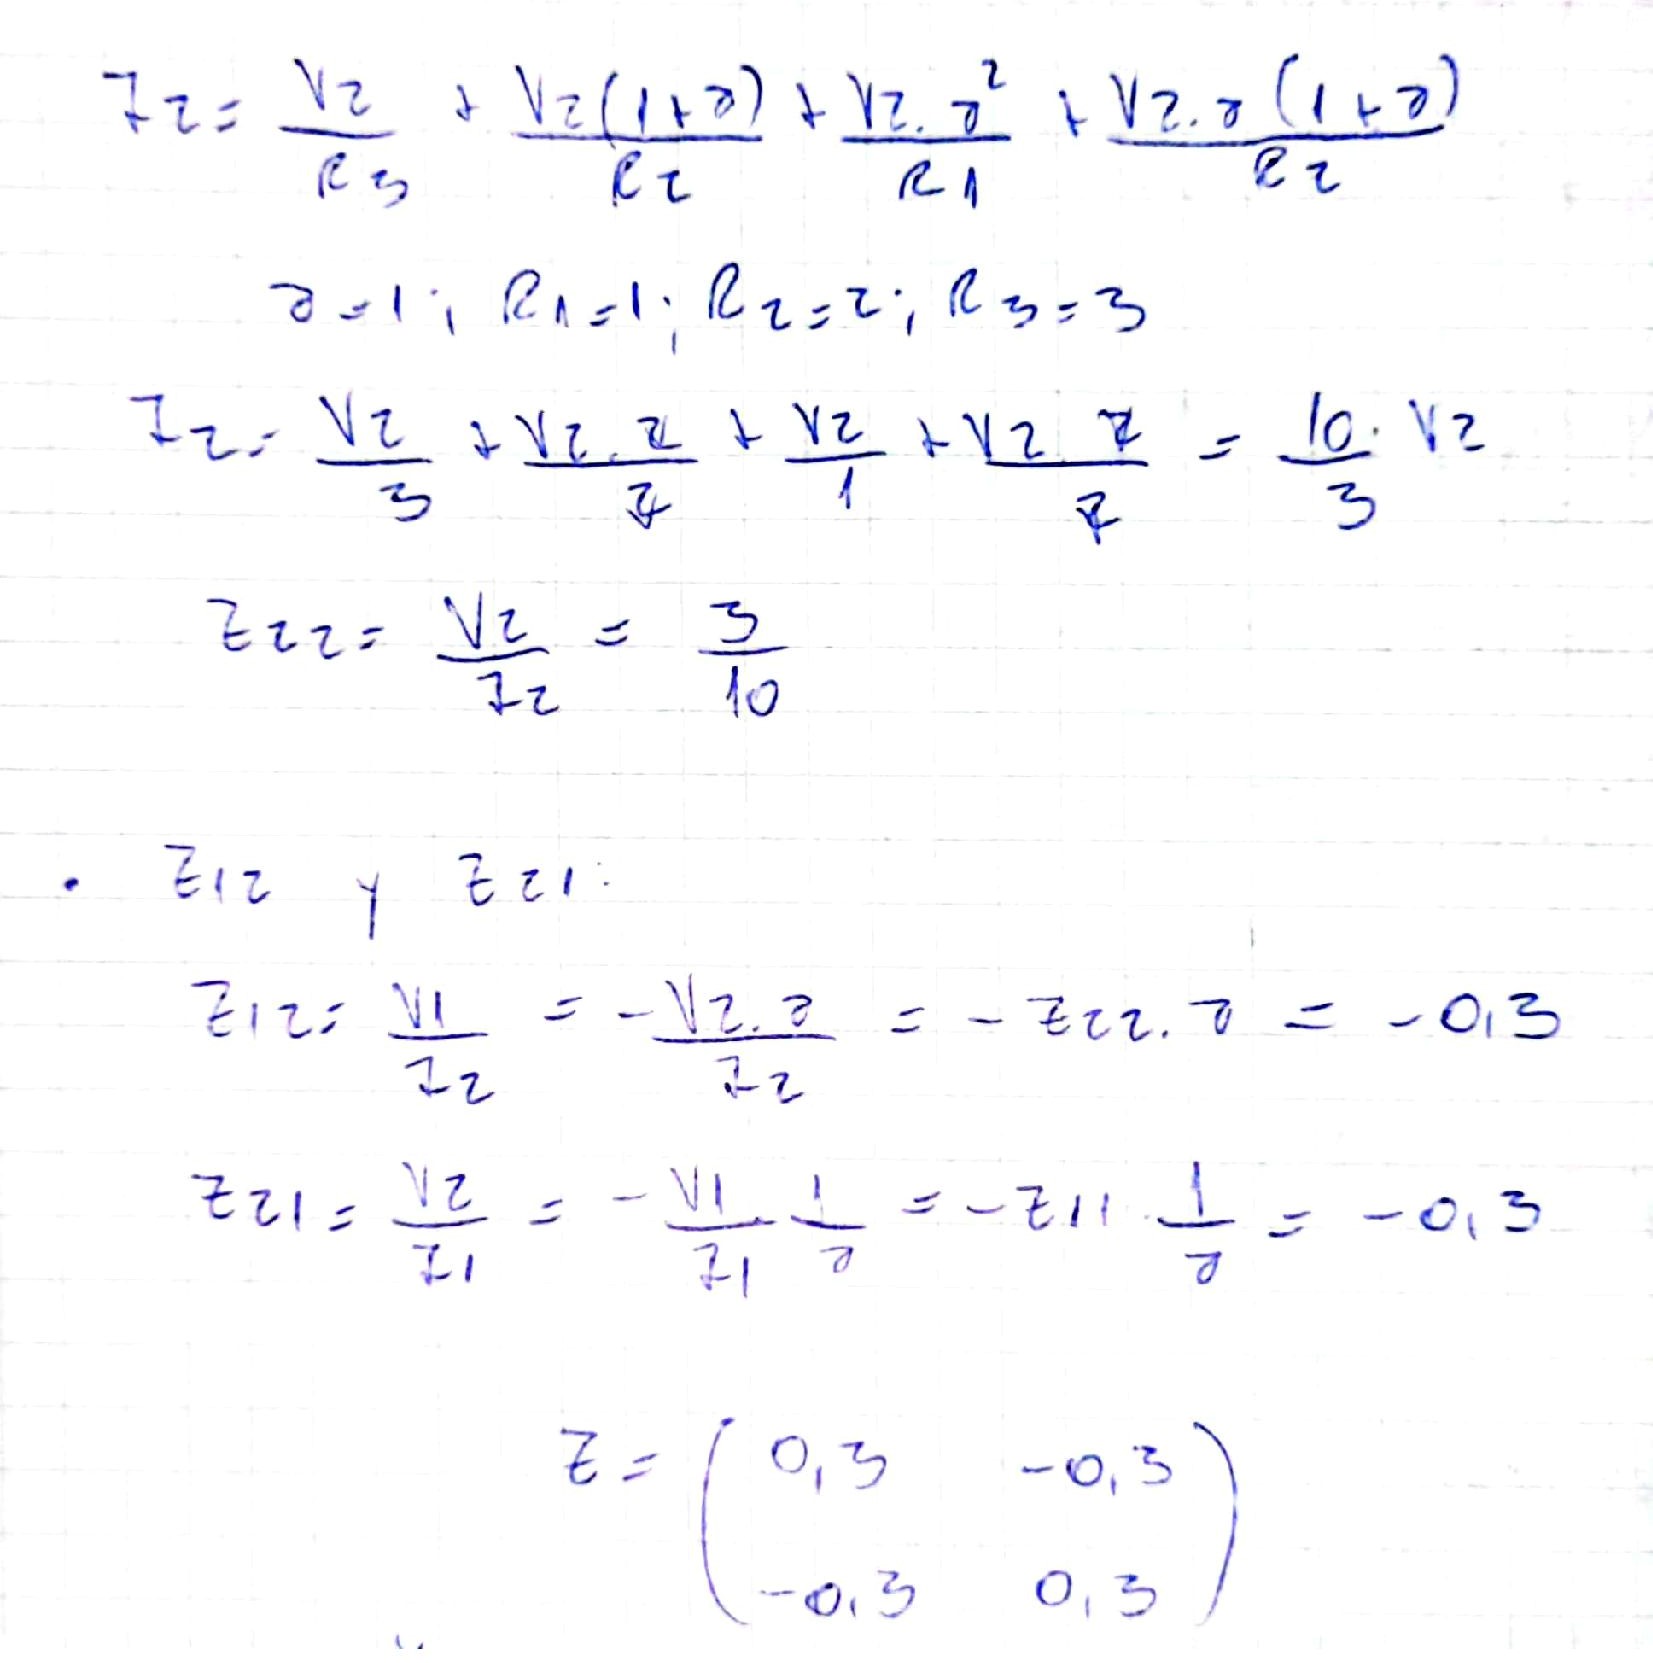 I2 = V2/R3 + V2(1+a)/R2 + V2.a²/R1 + V2.a(1+a)/R2
a=1; R1=1; R2=2; R3=3
I2 = V2/3 + V2.2/2 + V2/1 + V2.2/2 = 10/3 . V2
Z22 = V2/I2 = 3/10
• Z12 y Z21:
Z12 = V1/I2 = -V2.a/I2 = -Z22.a = -0,3
Z21 = V2/I1 = -V1/I1 . 1/a = -Z11 . 1/a = -0,3
Z = ( 0,3 -0,3
-0,3 0,3 )